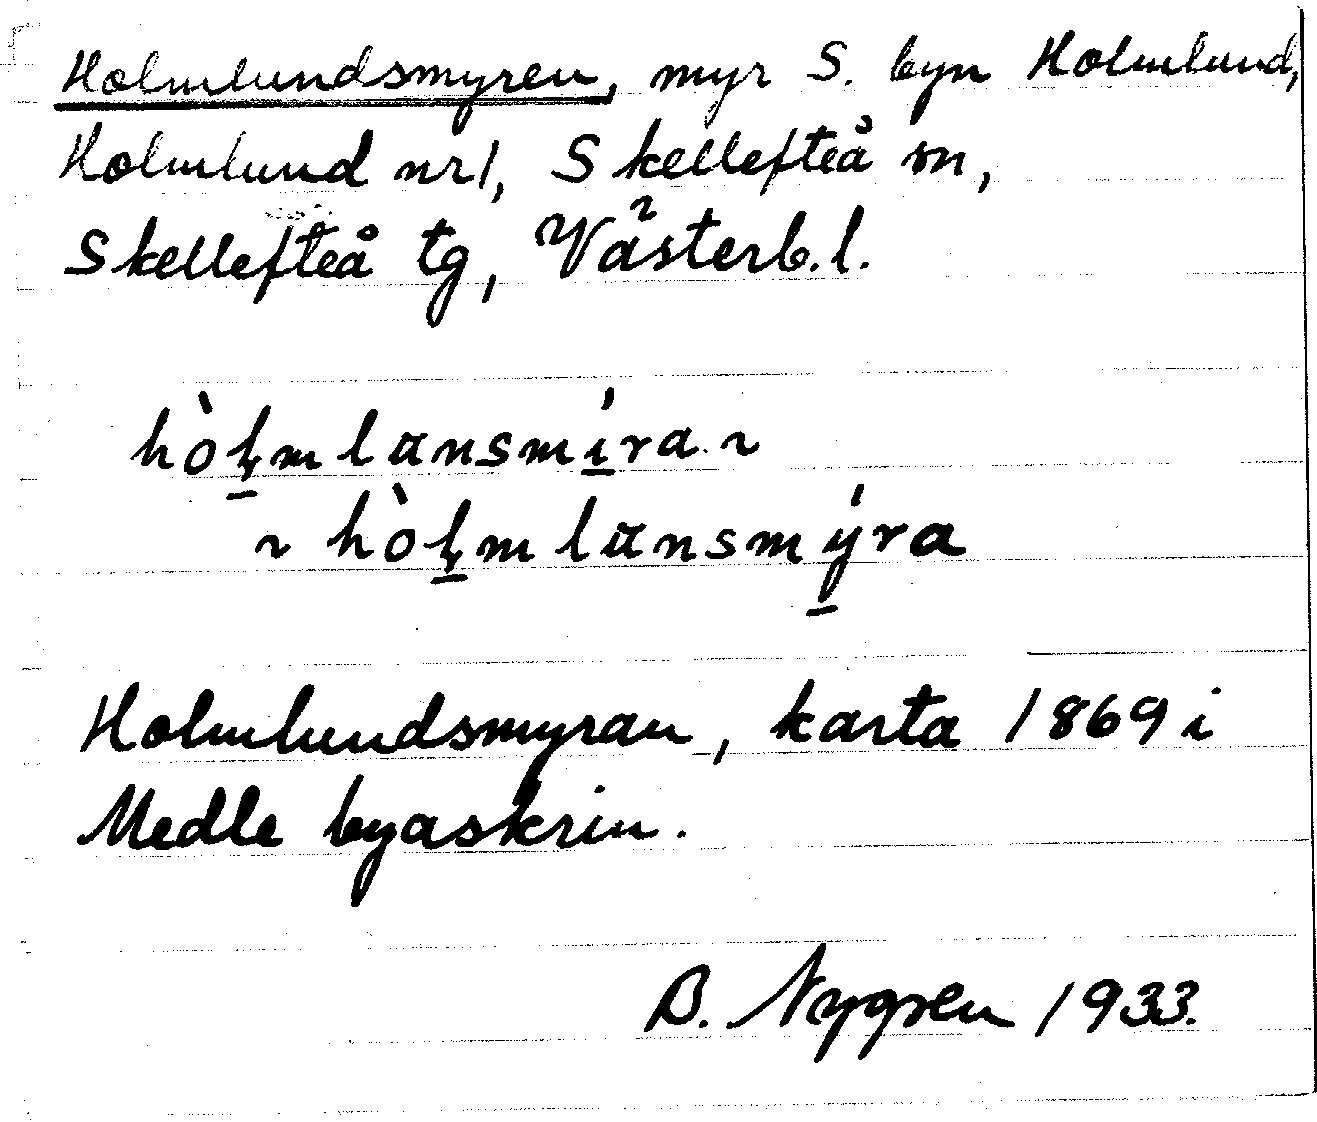 Holmlundsmyren, myr S. byn Holmlund,
Holmlund nr 1, Skellefteå sn,
Skellefteå tg, Västerb. l.
hòl̥mlansmí̲ra ~
~ hòl̥mlansmý̲ra
Holmlundsmyran, karta 1869 i
Medle byaskrin.
B. Nygren 1933.